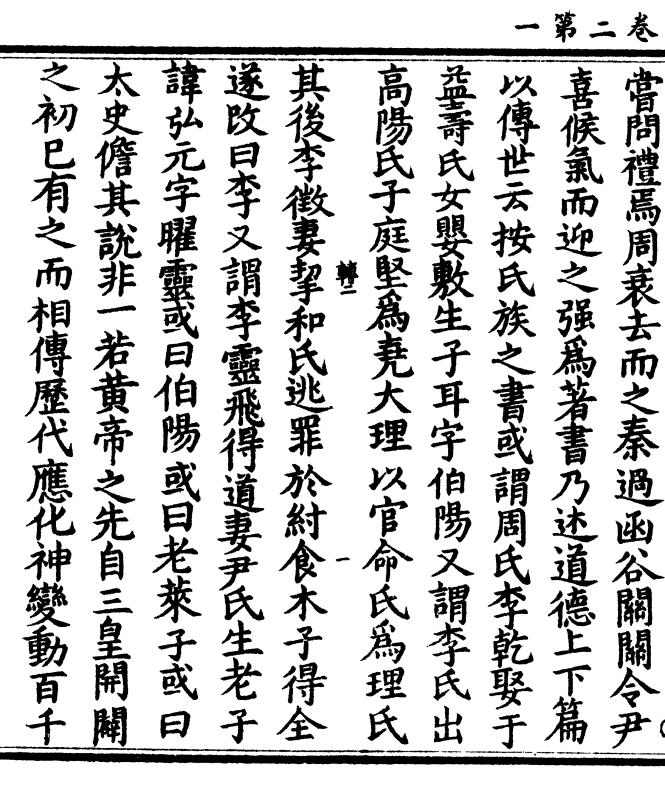 卷二第一
嘗問禮焉周衰去而之秦過函谷關關令尹
喜候氣而迎之强爲著書乃述道德上下篇
以傳世云按氏族之書或謂周氏李乾娶于
益壽氏女嬰敷生子耳字伯陽又謂李氏出
高陽氏子庭堅爲堯大理以官命氏爲理氏
轉二 一
其後李徵妻挈和氏逃罪於紂食木子得全
遂改曰李又謂李靈飛得道妻尹氏生老子
諱弘元字曜靈或曰伯陽或曰老萊子或曰
太史儋其說非一若黃帝之先自三皇開闢
之初巳有之而相傳歷代應化神變動百千